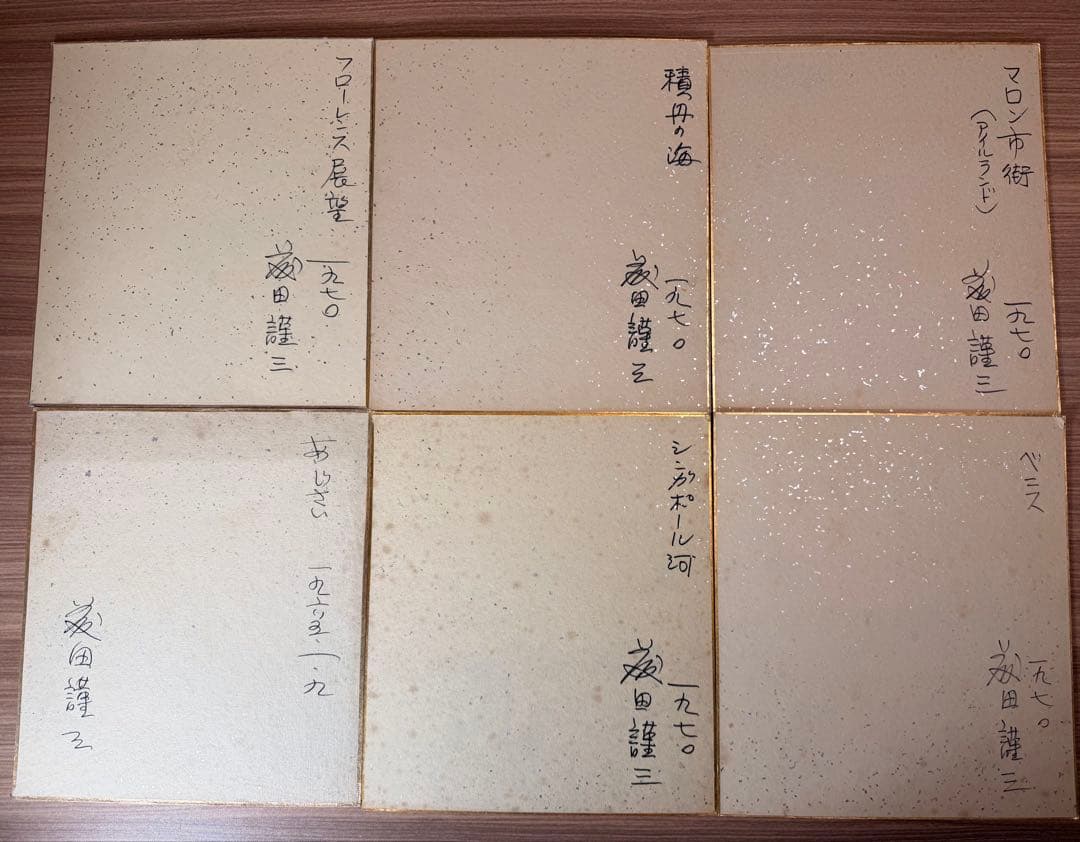 フローレンス展望
一九七〇
田謹三
積丹の海
一九七〇
田謹三
マロン市街
(アイルランド)
一九七〇
田謹三
あじさい 一九六五・一・九
田謹三
シンガポール河
一九七〇
田謹三
ベニス
一九七〇
田謹三